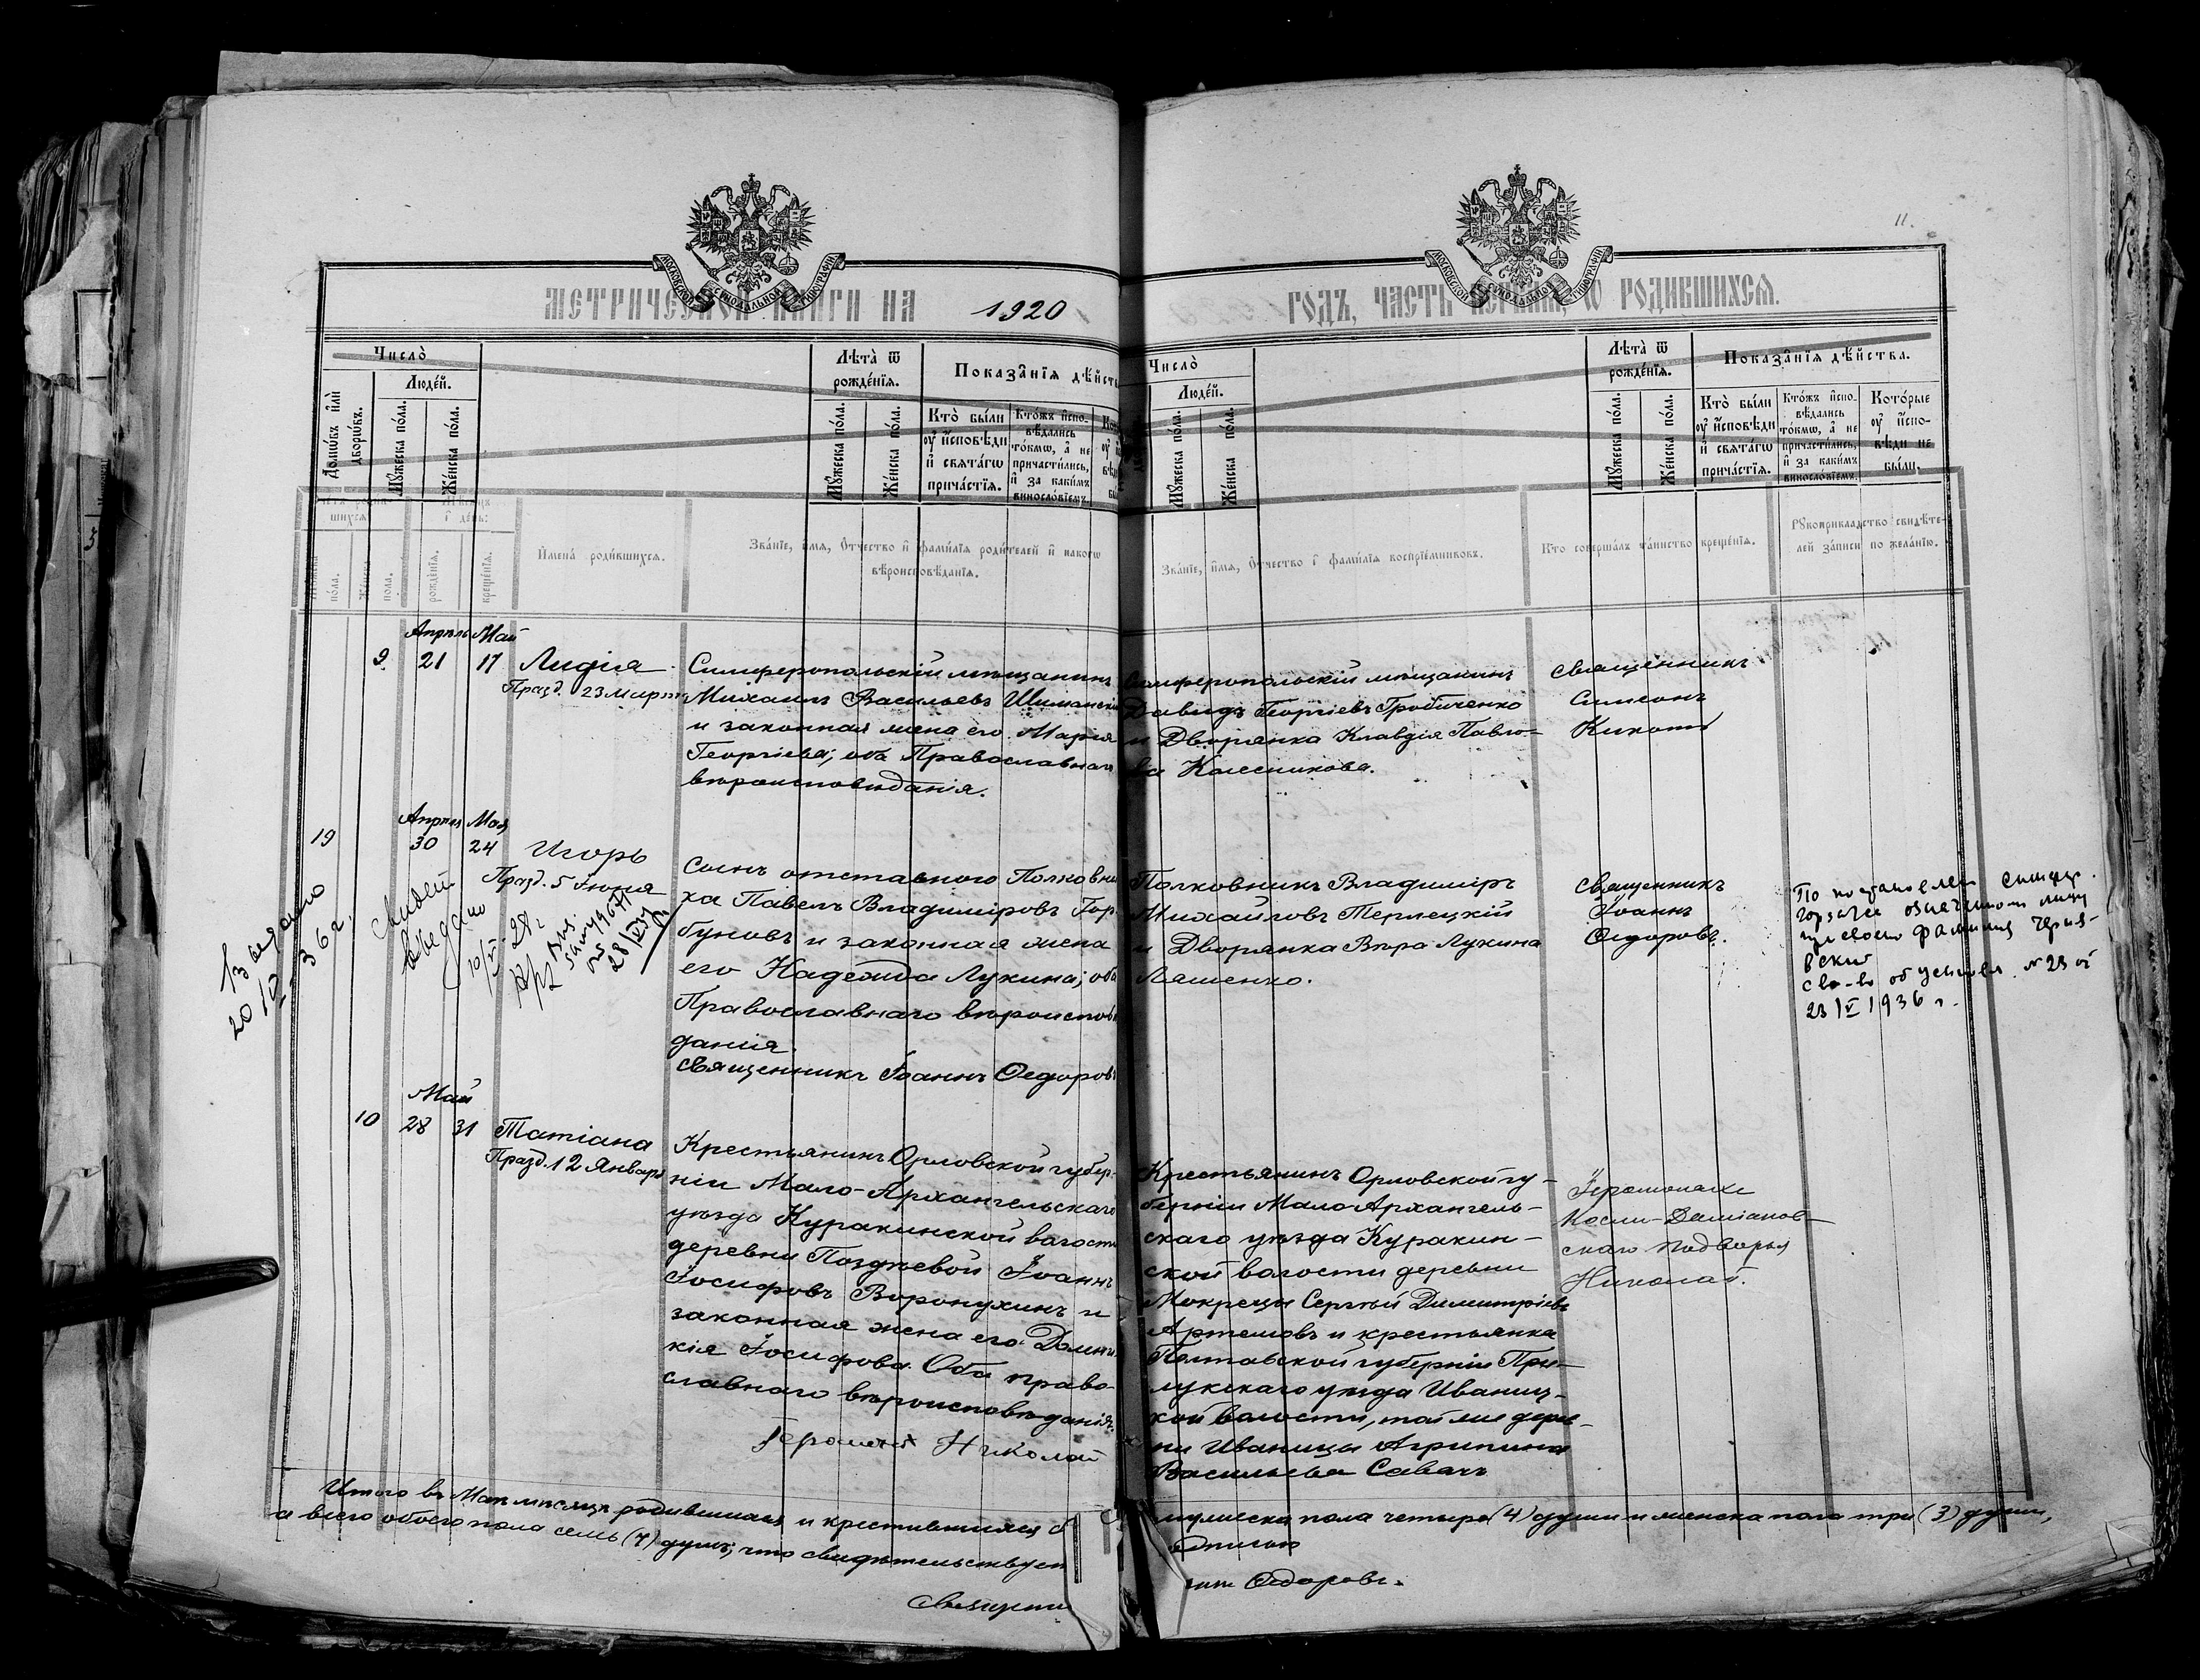 11.
МОСКОВСКОЙ СѴНОДАЛЬНОЙ ТИПОГРАФІИ
МОСКОВСКОЙ СѴНОДАЛЬНОЙ ТИПОГРАФІИ
МЕТРИЧЕСКОЙ КНИГИ НА 1920 ГОДЪ, ЧАСТЬ ПЕРВАЯ, Ѡ РОДИВШИХСѦ.
Число̀
Домѡ́въ и҆лѝ дворѡ́въ.
Люде́й.
Мꙋ́жеска по́ла.
Же́нска по́ла.
Лѣ́та ѿ рожде́нїѧ.
Мꙋ́жеска по́ла.
Же́нска по́ла.
Показа̑нїѧ дѣ́йст
Кто̀ бы́ли
оу҆ и҆́сповѣди
и҆ свѧта́гѡ
прича́стїѧ.
Кто́жъ и҆спо-
вѣ́дались
то́кмѡ, а҆ не
причасти́лись,
и҆ за каки́мъ
винослові́емъ
Число̀
Люде́й.
Мꙋ́жеска по́ла.
Же́нска по́ла.
Лѣ́та ѿ
рожде́нїѧ.
Мꙋ́жеска по́ла.
Же́нска по́ла.
Показа̑нїѧ дѣ́йства.
Кто̀ бы́ли
оу҆ и҆́сповѣди
и҆ свѧта́гѡ
прича́стїѧ.
Кто́жъ и҆спо-
вѣ́дались
то́кмѡ, а҆ не
причасти́лись,
и҆ за каки́мъ
винослові́емъ.
Кото́рые
оу҆ и҆спо-
вѣди не
бы́ли.
шихсѧ
и҆ де́нь:
по́ла.
пола.
рожде́нїѧ.
креще́нїѧ.
И҆мена̀ роди́вшихсѧ.
Зва́нїе, и҆́мѧ, ѻ҆́тчество и҆ фами́лїѧ роди́телей и҆ како́гѡ
вѣроисповѣ́данїѧ.
Зва́нїе, и҆́мѧ, ѻ҆́тчество и҆ фами́лїѧ воспрїе́мниковъ.
Кто соверша́лъ та́инство креще́нїѧ.
Рꙋкоприкла́дство свидѣ́те-
лей за́писи по жела́нїю.
Апрѣль Май
9. 21 17 Лидія
Празд. 23 Марта
Симферопольскій мѣщанинъ
Михаилъ Васильевъ Шиманскі
и законная жена его Марія
Георгіева; оба Православнаго
вѣроисповѣданія.
Симферопольскій мѣщанинъ
Давидъ Георгіевъ Гробиченко
и Дворянка Клавдія Павло-
ва Колесникова.
Священникъ
Симеонъ
Апрѣля Мая
19 30 24 Игорь
Празд. 5 Іюня
Выдано
20/
36 г.
28 г.
28/
Сынъ отставного Полковни
ка Павелъ Владиміровъ Гор
буновъ и законная жена
его Надежда Лукина; оба
Православнаго вѣроиспов
данія.
Священникъ Іоаннъ Ѳедоровъ
Полковникъ Владиміръ
Михайловъ Терлецкій
и Дворянка Вѣра Лукина
Ляшенко.
Священникъ
Іоаннъ
Ѳедоровъ.
По
фамилия
№ 23 от
23/V 1936 г.
Май
10 28 31 Татіана
Празд. 12 Января
Крестьянинъ Орловской губер-
ніи Мало-Архангельскаго
уѣзда Куракинской волости
деревни Поздѣевой Іоаннъ
Іосифовъ Воронухинъ и
законная жена его Домни-
кія Іосифова. Оба право-
славнаго вѣроисповѣданія.
Николай
Крестьянинъ Орловской гу-
берніи Мало-Архангель-
скаго уѣзда Куракин-
ской волости деревни
Мокрецы Сергѣй Димитріевъ
Артемовъ и крестьянка
Полтавской губерніи При-
лукскаго уѣзда Иваниц-
кой волости, той же дерев-
ни Иваница Агрипина
Васильева
Іеромонахъ
Косми-Даміанов-
скаго подворья
Николай.
Итого въ Маѣ мѣсяцѣ родившихся и крестившихся мужеска пола четыре (4) души и женска пола три (3) души,
а всего обоего пола семь (7) душъ; что свидѣтельствует
Священн
Ѳедоровъ.